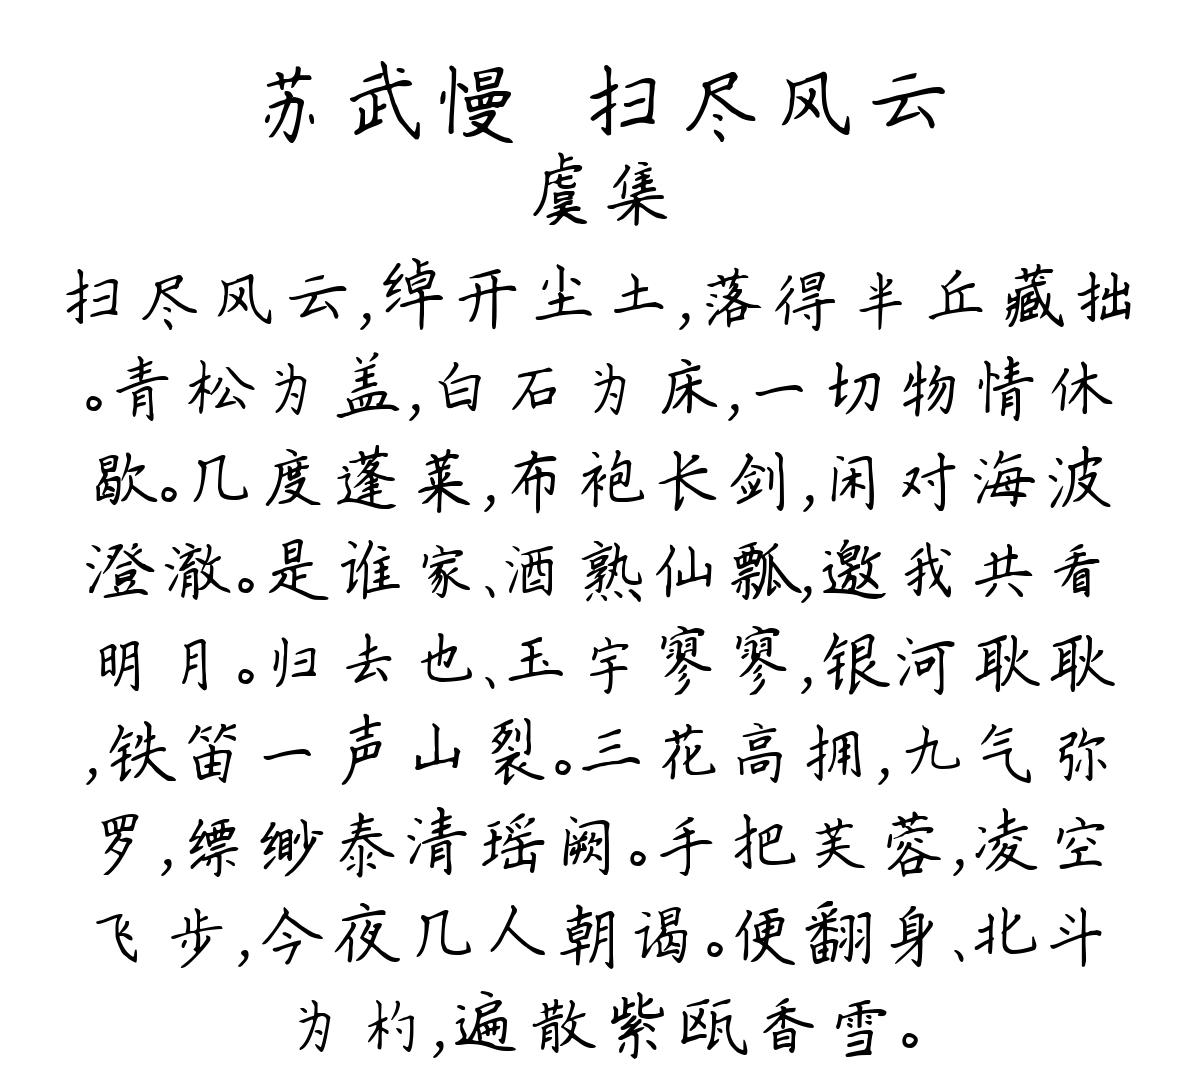 苏武慢 扫尽风云
虞集
扫尽风云,绰开尘土,落得半丘藏拙
。青松为盖,白石为床,一切物情休
歇。几度蓬莱,布袍长剑,闲对海波
澄澈。是谁家、酒熟仙瓢,邀我共看
明月。归去也、玉宇寥寥,银河耿耿
,铁笛一声山裂。三花高拥,九气弥
罗,缥缈泰清瑶阙。手把芙蓉,凌空
飞步,今夜几人朝谒。便翻身、北斗
为杓,遍散紫瓯香雪。